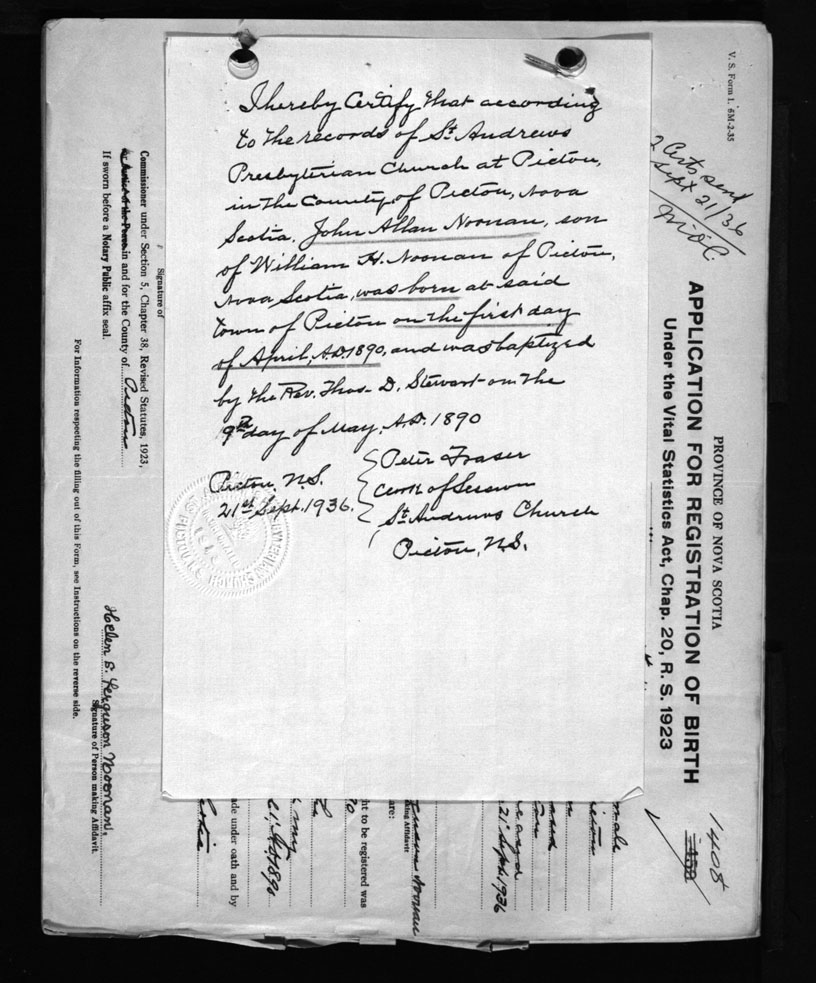 I hereby Certify that according
to the records of St. Andrews
Presbyterian Church at Pictou,
in the County of Pictou, Nova
Scotia, John Allan Noonan, son
of William H. Noonan of Pictou,
Nova Scotia, was born at said
town of Pictou on the first day
of April, A.D. 1890, and was baptized
by the Rev. Thos. D. Stewart on the
9th day of May, A.D. 1890
Peter Fraser
Clerk of Session
St. Andrews Church
Pictou, N.S.
Pictou, N.S.
21st Sept. 1936.
V. S. Form I. 6M-2-35
2 Certs send
Sept 21/36
PROVINCE OF NOVA SCOTIA
APPLICATION FOR REGISTRATION OF BIRTH
Under the Vital Statistics Act, Chap. 20, R. S. 1923
1408
male
21 Sept. 1936
Noonan
king Affidavit
are:
ht to be registered was
my
ade under oath and by
Signature of
Commissioner under Section 5, Chapter 38, Revised Statutes, 1923,
or Justice of the Peace in and for the County of Pictou
If sworn before a Notary Public affix seal.
Helen S. Ferguson Noonan,
Signature of Person making Affidavit.
For Information respecting the filling out of this Form, see Instructions on the reverse side.